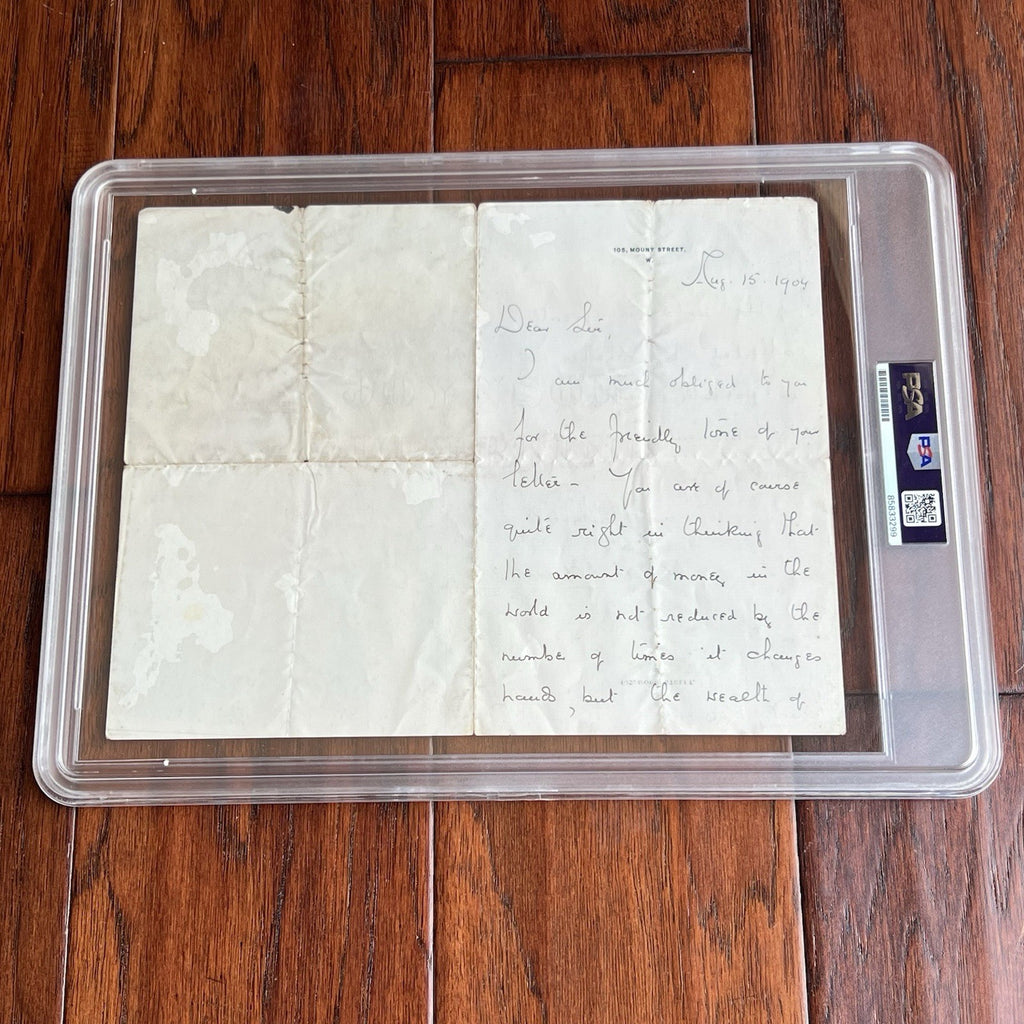 105, MOUNT STREET,
W.
Aug. 15. 1904
Dear Sir,
I am much obliged to you
for the friendly tone of your
letter – You are of course
quite right in thinking that
the amount of money in the
world is not reduced by the
number of times it changes
hands, but the wealth of
PSA
PSA
85833299